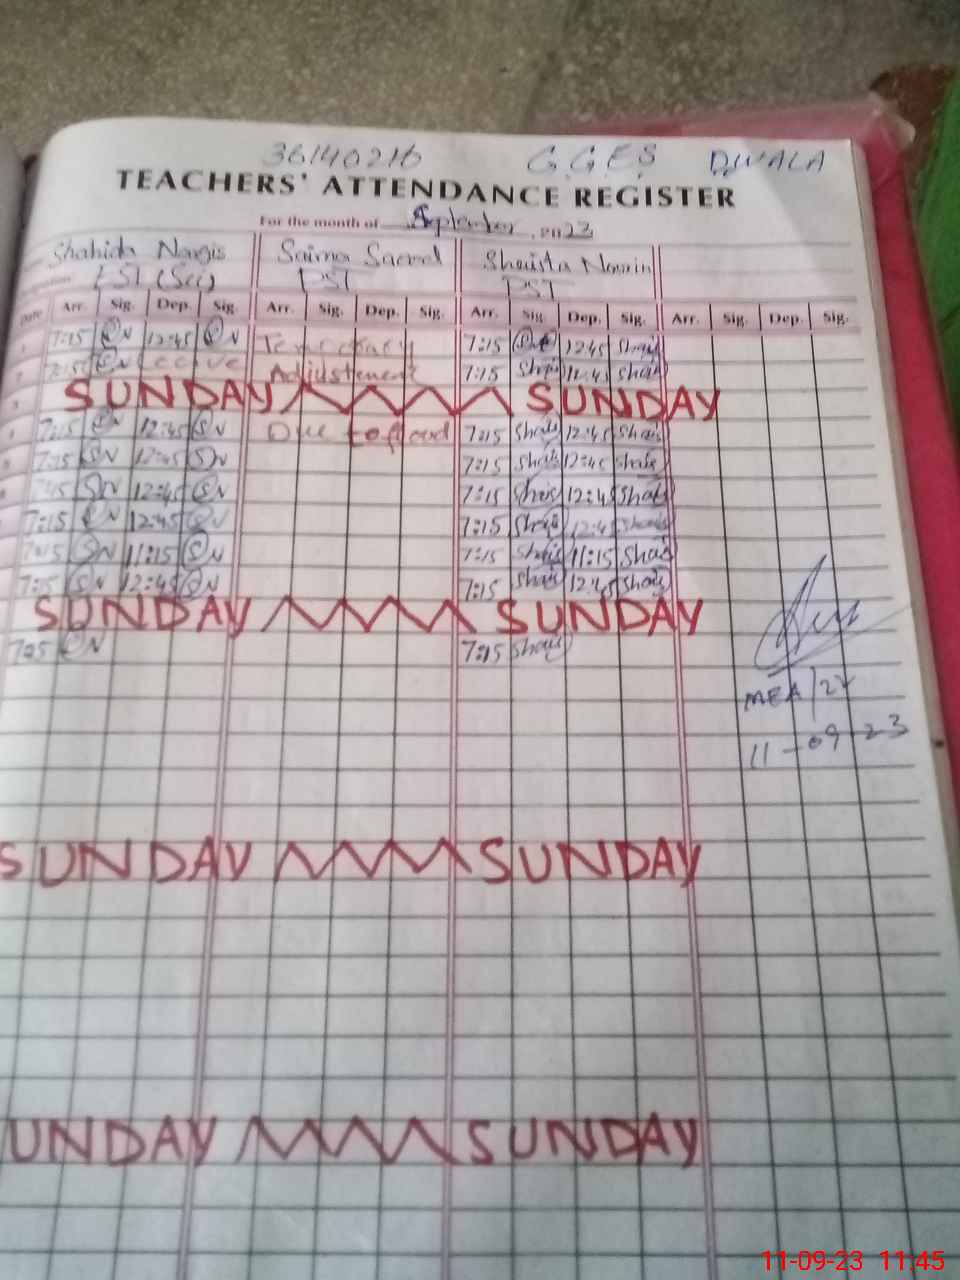 36140216 G.G.E.S D.WALA
TEACHERS' ATTENDANCE REGISTER
For the month of September, 2023
Shahida Nargis Saima Saeed Shaista Namrin
EST (Sci) PST PST
Date Arr. Sig. Dep. Sig. Arr. Sig. Dep. Sig. Arr. Sig. Dep. Sig. Arr. Sig. Dep. Sig.
7:15 SN 12:45 SN Temporary 7:15 12:45 Shais
7:15 SN Leave Adjustement 7:15 Shais 12:45 Shais
SUNDAY SUNDAY
7:15 SN 12:45 SN Due to 7:15 Shais 12:45 Shais
7:15 SN 12:45 SN 7:15 Shais 12:45 Shais
7:15 SN 12:45 SN 7:15 Shais 12:45 Shais
7:15 SN 12:45 SN 7:15 Shais 12:45 Shais
7:15 SN 11:15 SN 7:15 Shais 11:15 Shais
7:15 SN 12:45 SN 7:15 Shais 12:45 Shais
SUNDAY SUNDAY
7:15 SN 7:15 Shais
MEA/24
11-09-23
SUNDAY SUNDAY
UNDAY SUNDAY
11-09-23 11:45